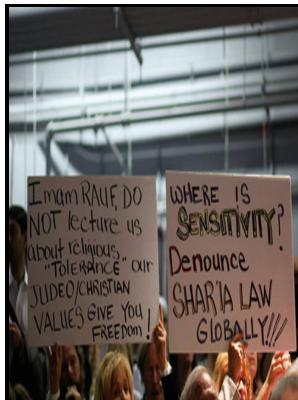 Imam RAUF, DO
NOT lecture us
about religious
"TOLERANCE" our
JUDEO/CHRISTIAN
VALUES GIVE YOU
FREEDOM!
WHERE IS
SENSITIVITY?
Denounce
SHAR'IA LAW
GLOBALLY!!!